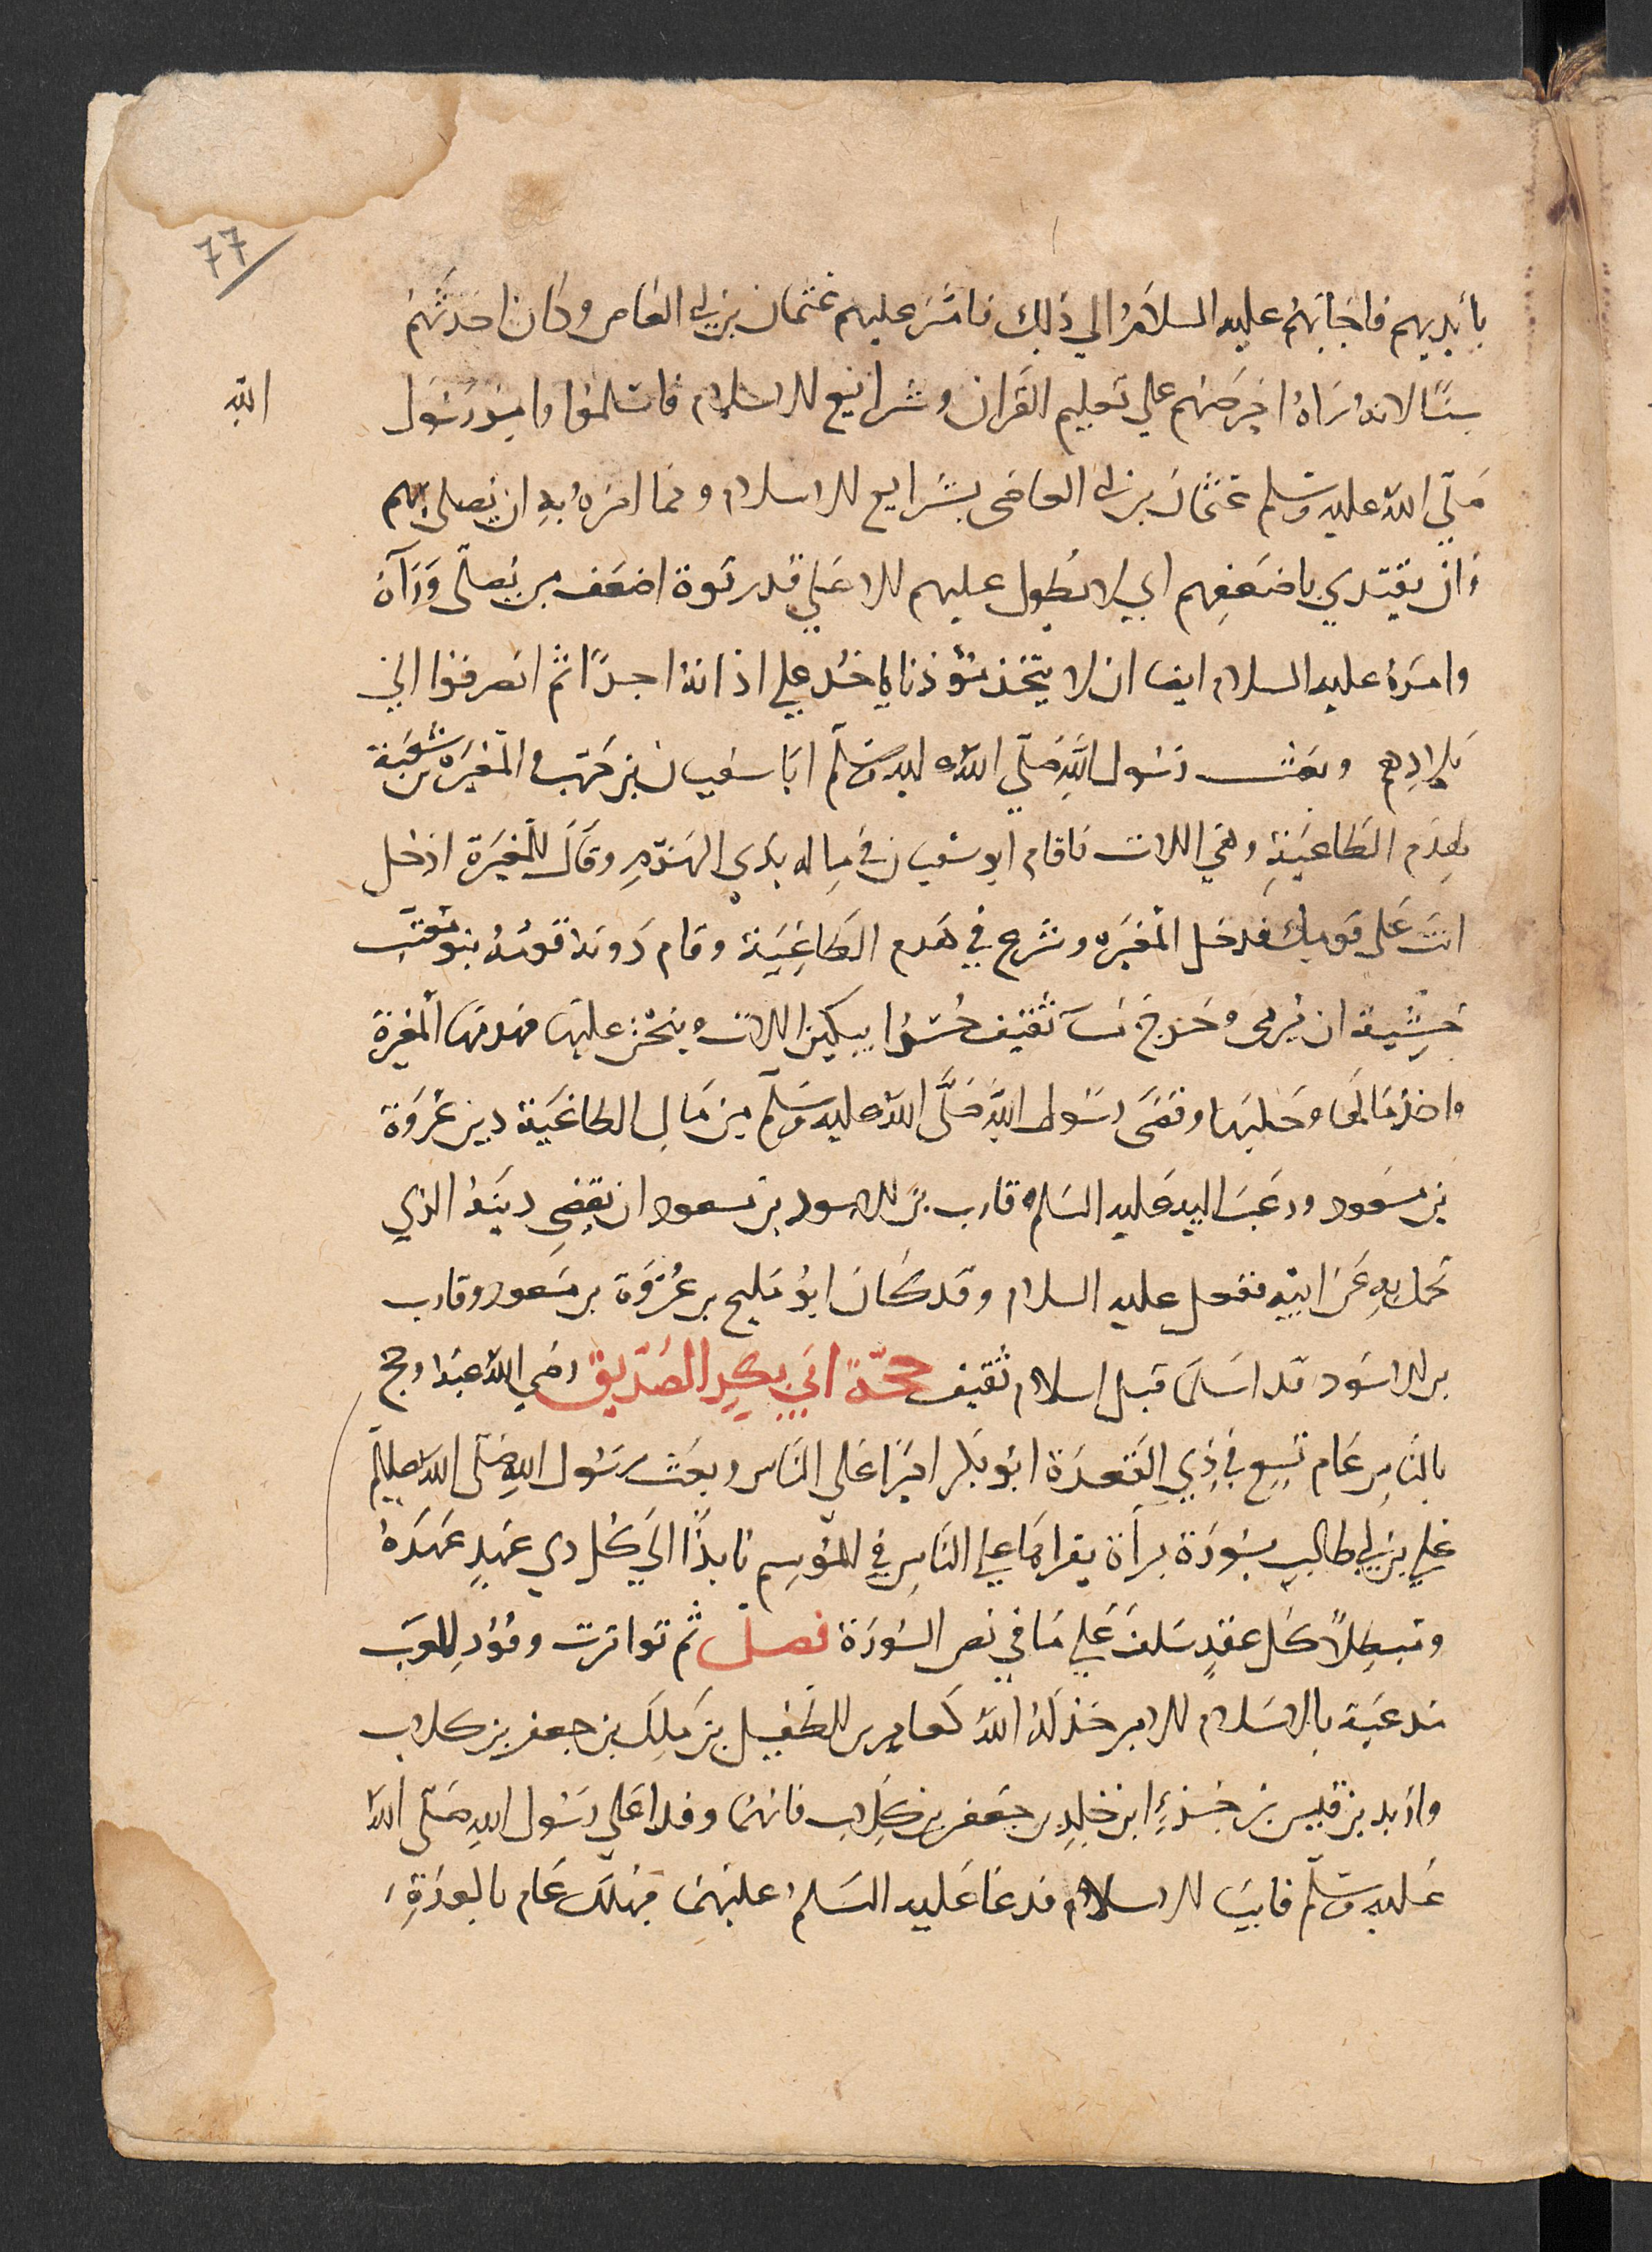 77
بايديهم فاجابهم عليه السلام الي ذلك فامّر عليهم عثمان بن ابي العاص وكان احدثهم
سنًا لانه راه احرصهم علي تعليم القران وشرائع الاسلام فاسلموا وامر رسول
الله
صلّي الله عليه وسلم عثمان بن ابي العاصى بشرايع الاسلام ومما امره به ان يصلى بهم
وان يقتدي باضعفهم اي لا يطول عليهم الا علي قدر قوة اضعف من يصلّى ورآه
وامره عليه السلام ايضا ان لا يتخذ مؤذنا ياخذ علي اذانه اجرًا ثم انصرفوا الي
بلادهم وبعث رسول الله صلّي الله عليه وسلّم ابا سفيان بن حرب والمغيرة بن شعبة
لهدم الطاغية وهي اللات فاقام ابو سفيان في ماله بذي الهدم وقال للمغيرة ادخل
انت على قومك فدخل المغيره وشرع في هدم الطاغية وقام دونه قومه بنو معتب
خشية ان يرمى وخرج نسآ ثقيف حسّرا يبكين اللات وينحن عليها فهدمها المغيرة
واخذ مالها وحليها وقضى رسول الله صلّى الله عليه وسلّم من مال الطاغية دين عروة
بن مسعود ورغب اليه عليه السلم قارب بن الاسود بن مسعود ان يقضي دينه الذي
تحمل به عن ابيه ففعل عليه السلام وقد كان ابو مليح بن عروة بن مسعود وقارب
بن الاسود قد اسلما قبل اسلام ثقيف حجّة ابي بكر الصدّيق رضي الله عنه وحج
بالناس عام تسع في ذي القعدة ابو بكر اميرا على الناس وبعث رسول الله صلّى الله عليه وسلّم
علي بن ابي طالب بسورة براة يقراها علي الناس في الموسم نابذًا الي كل ذي عهد عهده
ومبطلاً كل عقد سلف علي ما في نص السورة فصل ثم تواترت وفود العرب
مذعنة بالاسلام الا من خذله الله كعامر بن الطفيل بن ملك بن جعفر بن كلاب
واربد بن قيس بن جزء ابن خلد بن جعفر بن كلاب فانهما وفدا علي رسول الله صلّى الله
عليه وسلّم فابيا الاسلام فدعا عليه السلم عليهما فهلك عامر بالغدة